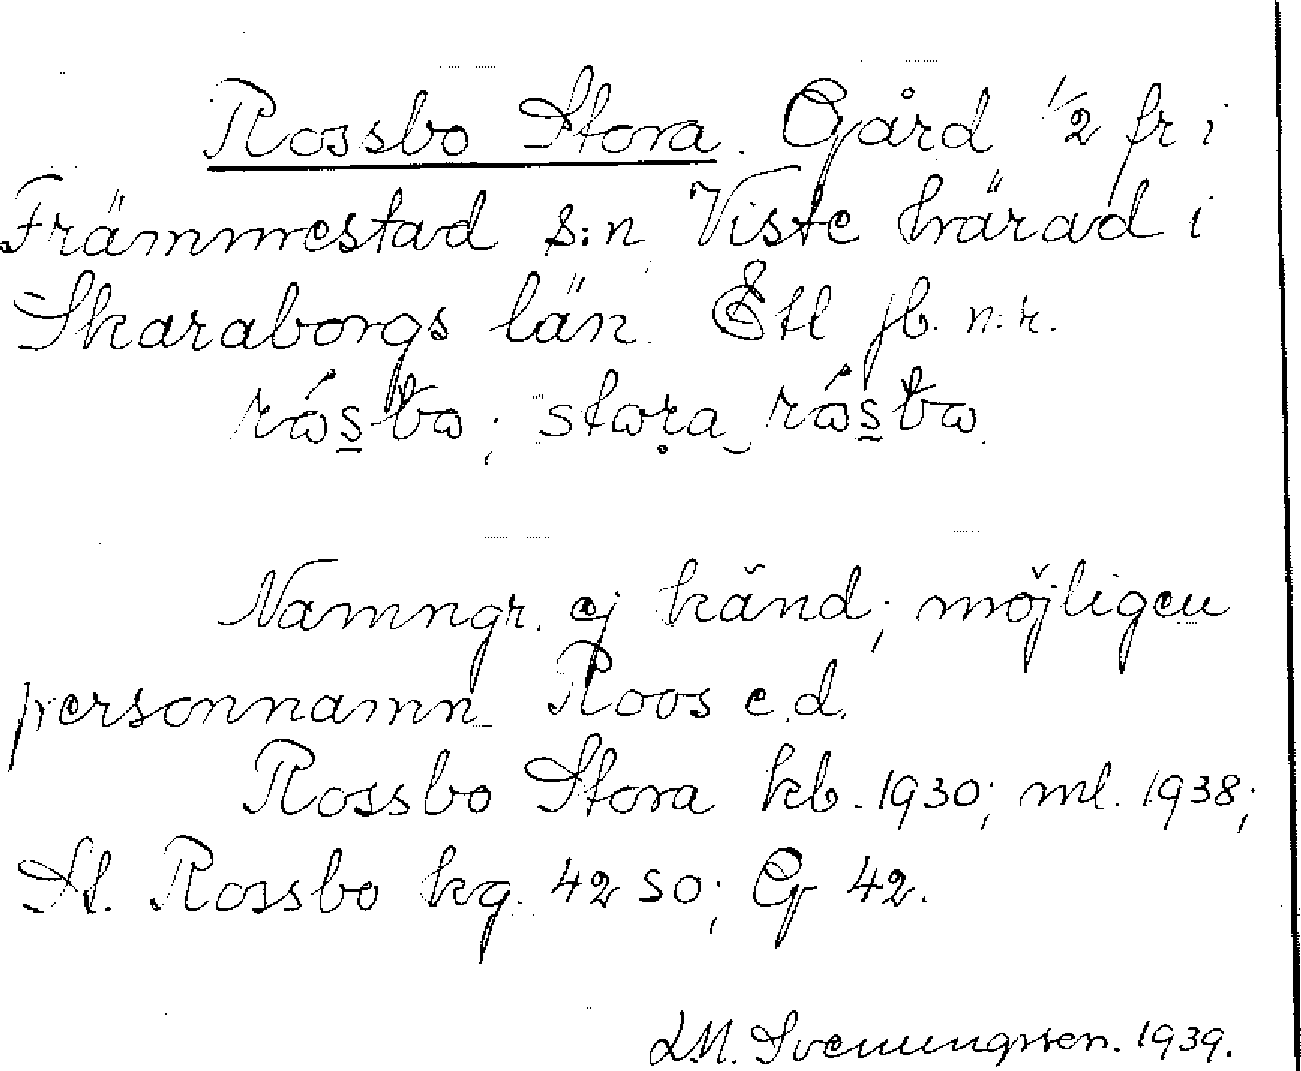 Rossbo Stora. Gård 1/2 fr i
Främmestad s:n Viste härad i
Skaraborgs län. Etl jb. n:r.
råsbo; stora råsbo.
Namngr. ej känd; möjligen
personnamn Roos e.d.
Rossbo Stora kb. 1930; ml. 1938;
St. Rossbo kg. 42 SO; G 42.
LM. Svenungsson. 1939.